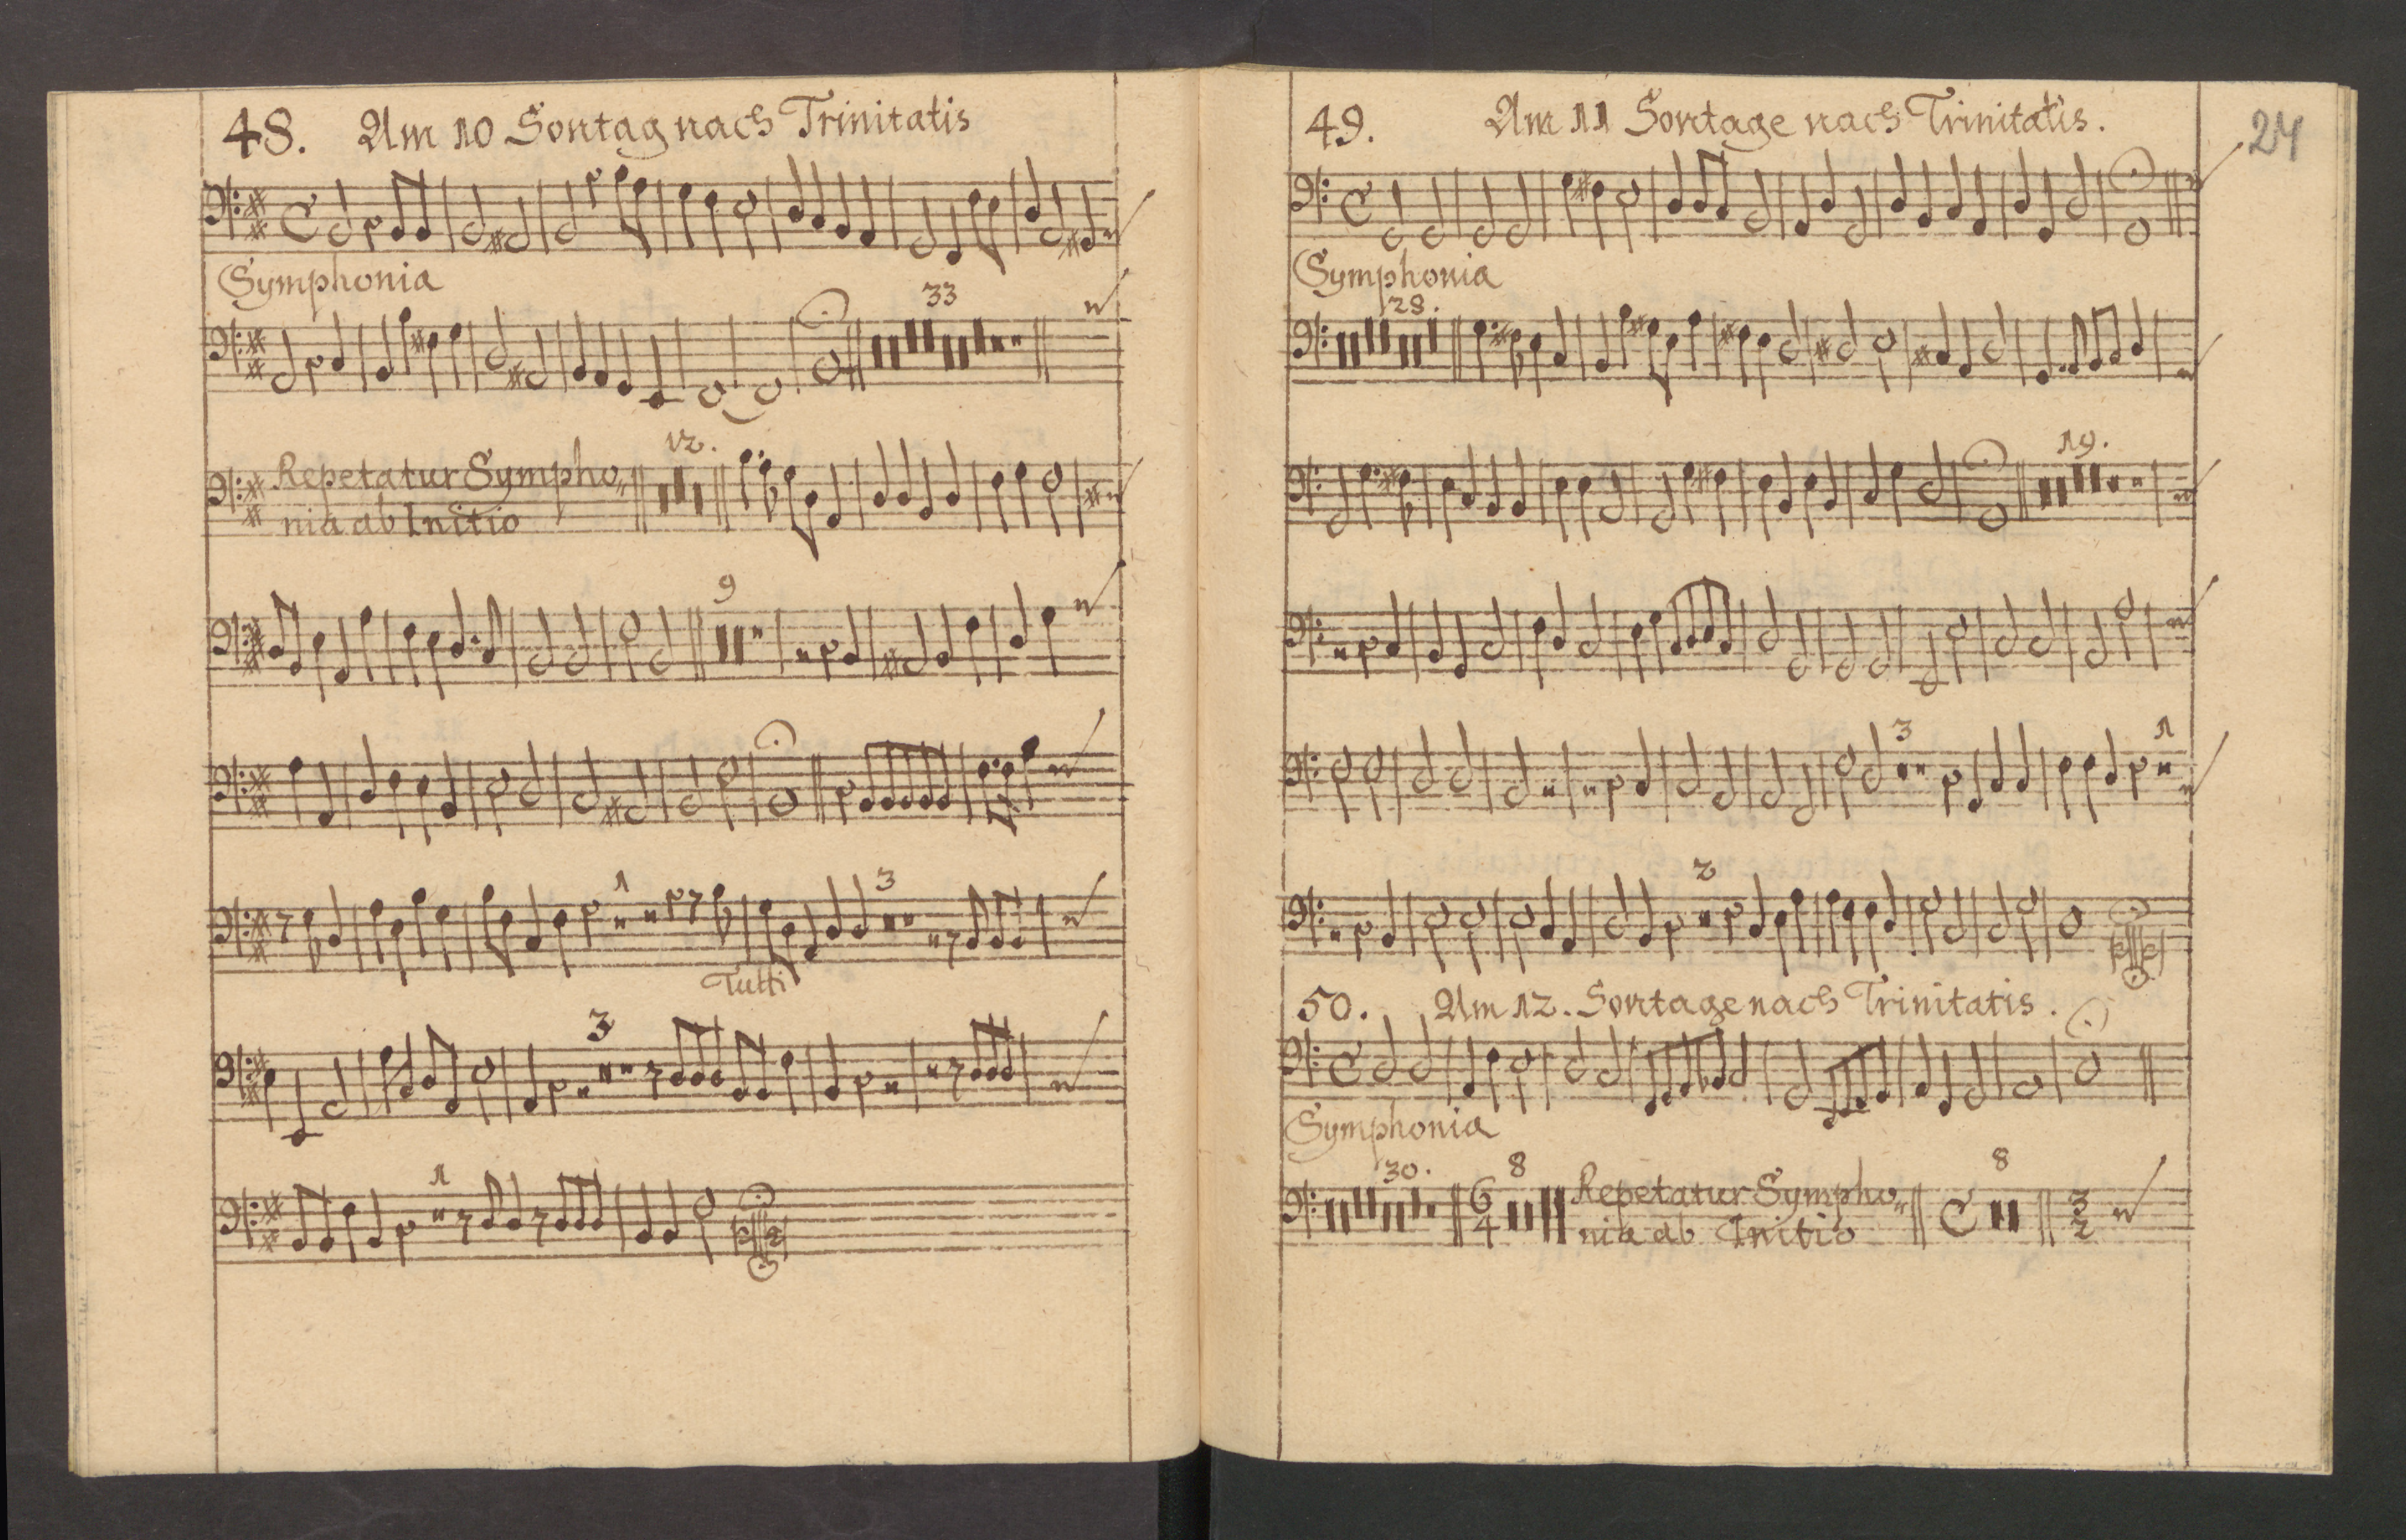 48. Am 10 Sontag nach Trinitatis
Symphonia
33
Repetatur Sympho„
12.
nia ab Initio
9
1
3
Tutti
3
1
24
49. Am 11 Sontage nach Trinitatis.
Symphonia
28.
19.
3
1
2
50. Am 12. Sontage nach Trinitatis.
Symphonia
30.
6
4
8
Repetatur Sympho„
nia ab Initio
8
3
2